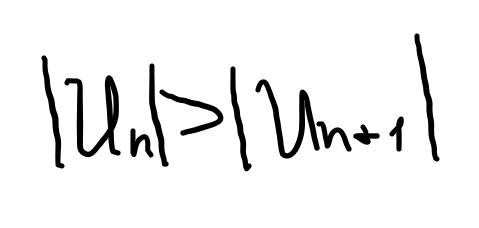 |U_n| > |U_{n+1}|